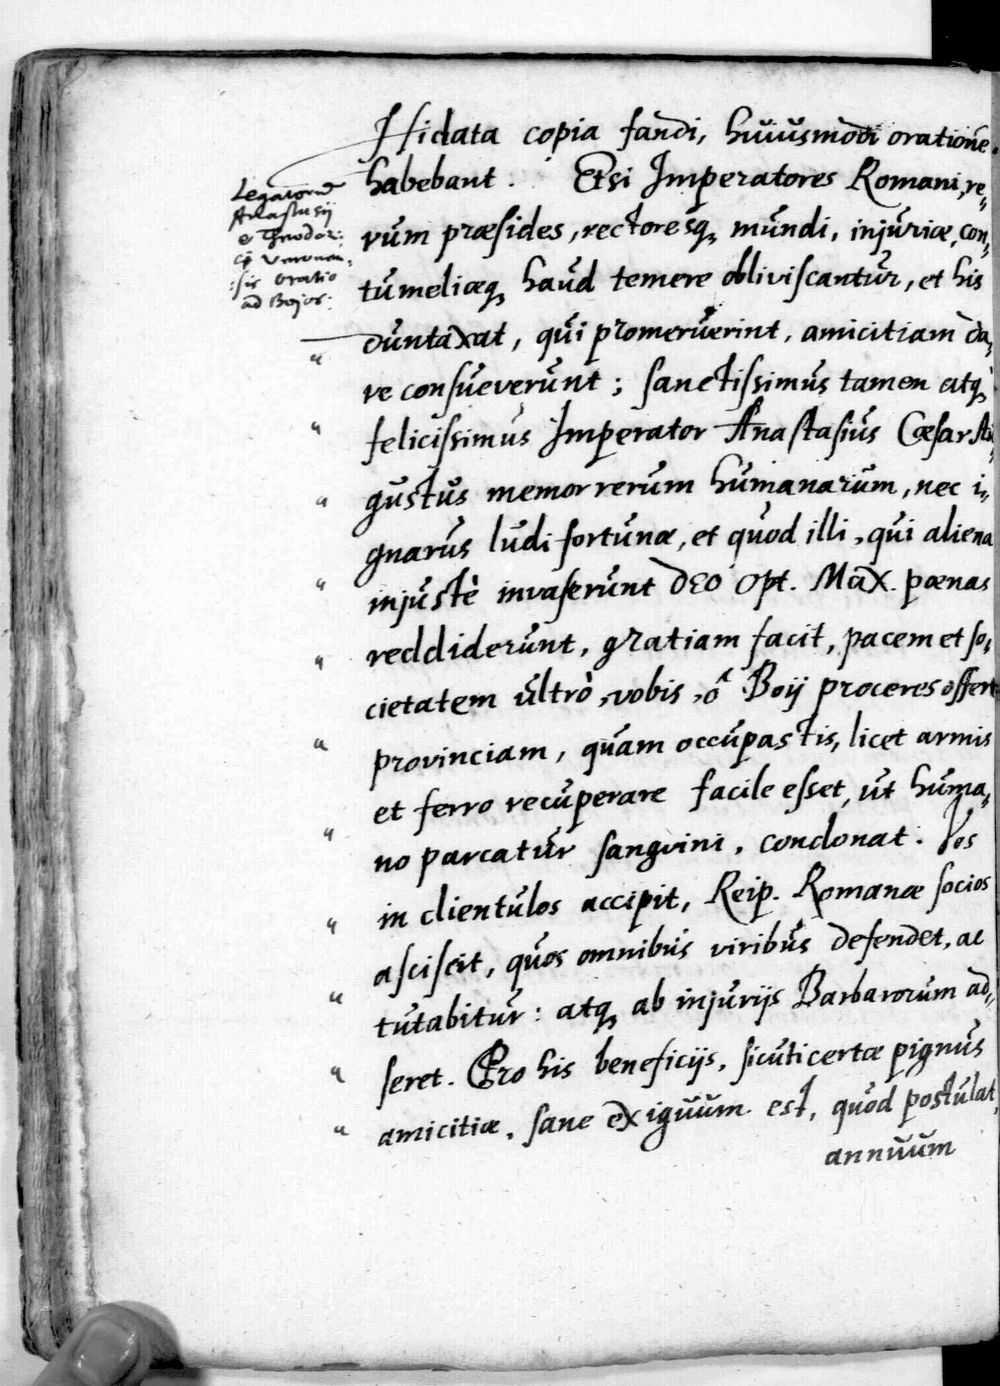 Hi data copia fandi, huiusmodi orationē
habebant. Etsi Imperatores Romani, re„
rum præsides, rectoresq, mundi, injuriæ, con„
tumeliæq, haud temere obliviscantur, et his
duntaxat, qui promeruerint, amicitiam da„
re consueverunt; sanctissimus tamen atq,
felicissimus Imperator Anastasius Cæsar Au„
gustus memor rerum humanarum, nec i„
gnarus ludi fortunæ, et quod illi, qui aliena
injustè invaserunt DEO Opt. Max. pœnas
reddiderunt, gratiam facit, pacem et so„
cietatem ultrò, vobis, ô Boij proceres offert
provinciam, quam occupastis, licet armis
et ferro recuperare facile esset, ut huma„
no parcatur sangvini, condonat. Vos
in clientulos accipit, Reip. Romanæ socios
asciscit, quos omnibus viribus defendet, ac
tutabitur: atq, ab injurijs Barbarorum ad„
seret. Pro his beneficijs, sicuti certæ pignus
amicitiæ, sane exiguum est, quod postulat,
annuum
Legatorū
Anastasij
e Theodor:
Veronen„
:sis oratio
ad Bojos: